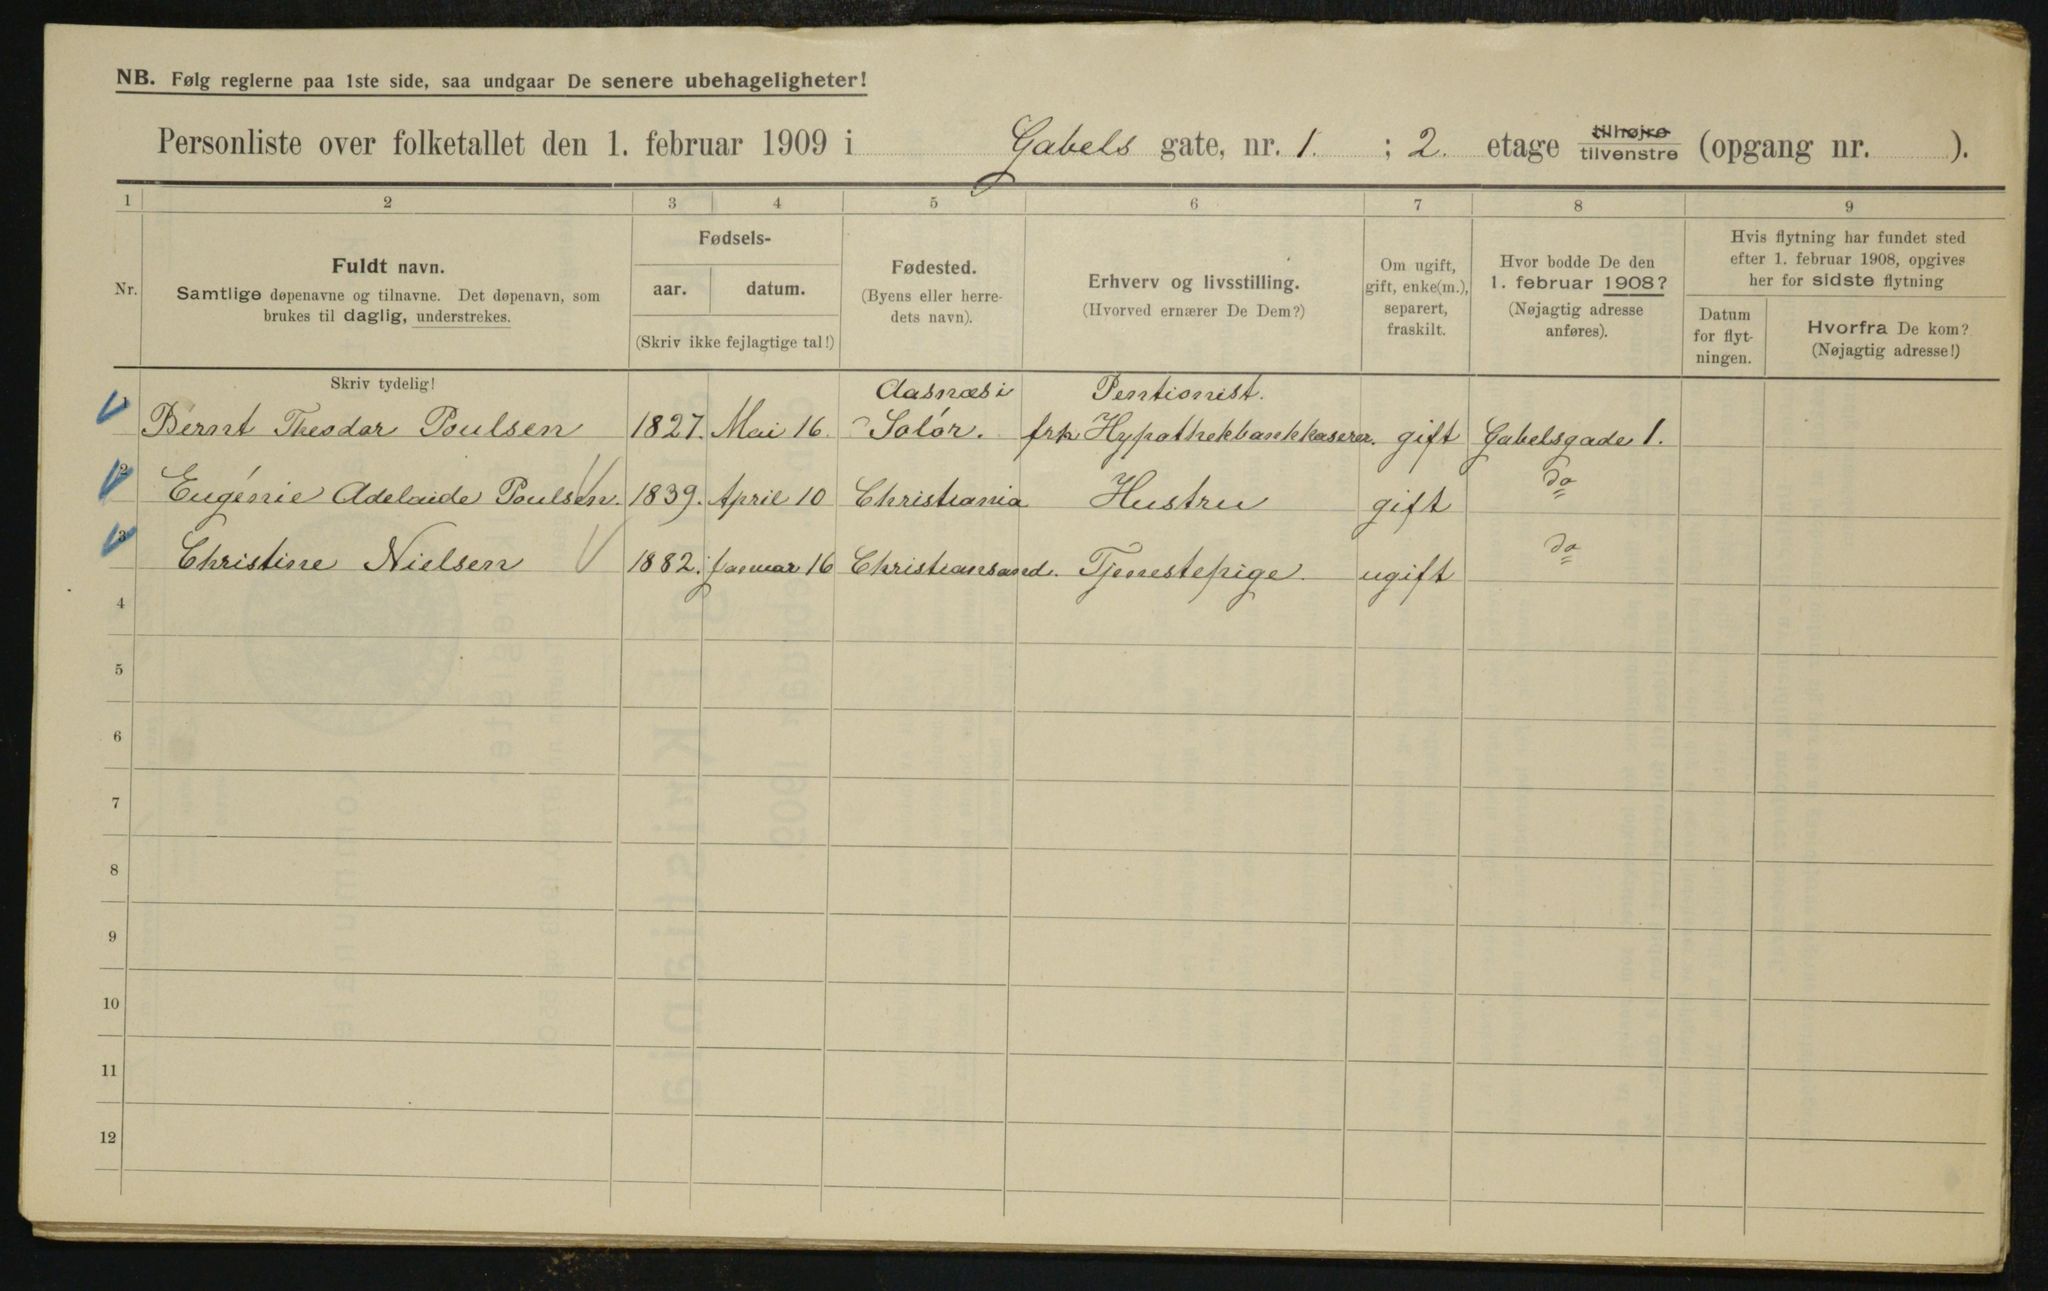 NB. Følg reglerne paa 1ste side, saa undgaar De senere ubehageligheter!
Personliste over folketallet den 1. februar 1909 i Gabels gate, nr. 1. ; 2. etage tilhøjre tilvenstre (opgang nr. ).
1 2 3 4 5 6 7 8 9
Nr.
Fuldt navn.
Samtlige døpenavne og tilnavne. Det døpenavn, som
brukes til daglig, understrekes.
Skriv tydelig!
Fødsels-
aar. datum.
(Skriv ikke fejlagtige tal!)
Fødested.
(Byens eller herre-
dets navn).
Erhverv og livsstilling.
(Hvorved ernærer De Dem?)
Om ugift,
gift, enke(m.),
separert,
fraskilt.
Hvor bodde De den
1. februar 1908?
(Nøjagtig adresse
anføres).
Hvis flytning har fundet sted
efter 1. februar 1908, opgives
her for sidste flytning
Datum
for flyt-
ningen.
Hvorfra De kom?
(Nøjagtig adresse!)
Aasnæs i Pentionist.
1 Bernt Theodor Poulsen 1827. Mai 16. Solør. frh Hypothekbankkaserer. gift Gabelsgade 1.
2 Eugénie Adelaide Poulsen. 1839. April 10 Christiania Hustru gift do
3 Christine Nielsen 1882. Januar 16 Christiansand. Tjenestepige. ugift do
4
5
6
7
8
9
10
11
12